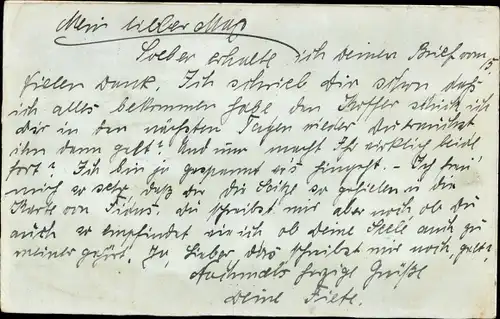 Mein lieber Max
Soeben erhalte ich deinen Brief vom 15
Vielen Dank. Ich schrieb dir schon daß
ich alles bekommen habe den Koffer schick ich
dir in den nächsten Tagen wieder du brauchst
ihn dann gelt? Und nun macht Ihr wirklich beide
fort? Ich bin ja gespannt wie's hingeht. - Ich freu
mich so sehr daß dir die so gefielen u die
Karte von. Du schreibst mir aber noch ob du
auch so empfindest wie ich ob deine Seele auch zu
meiner gehört. Ja, Lieber das schreibst mir noch, gelt?
Nochmals herzige Grüße
Deine Friede.